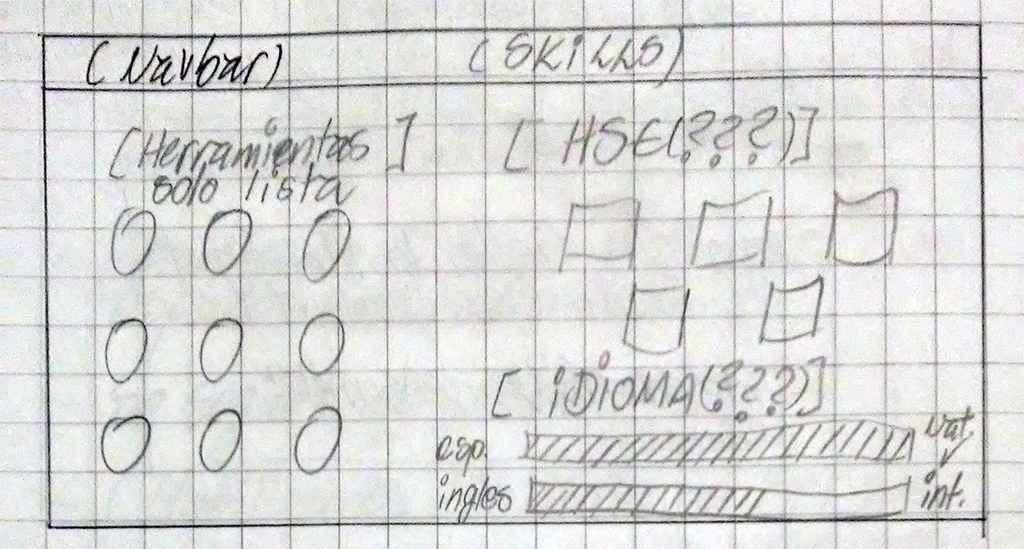 (Navbar) (SKILLS)
[Herramientas]
solo lista
[HSE(???)]
[iDiOMA(???)]
esp. nat.
ingles int.